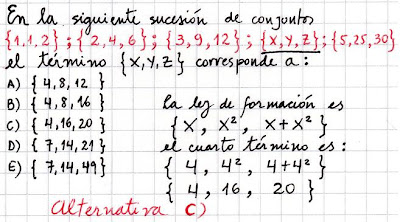 En la siguiente sucesión de conjuntos
{1,1,2} ; {2,4,6} ; {3,9,12} ; {X,Y,Z} ; {5,25,30}
el término {X,Y,Z} corresponde a :
A) { 4,8,12 }
B) { 4,8,16 }
C) { 4,16,20 }
D) { 7,14,21 }
E) { 7,14,49 }
La ley de formación es
{ X , X², X+X² }
el cuarto término es :
{ 4, 4², 4+4² }
{ 4, 16, 20 }
Alternativa C)